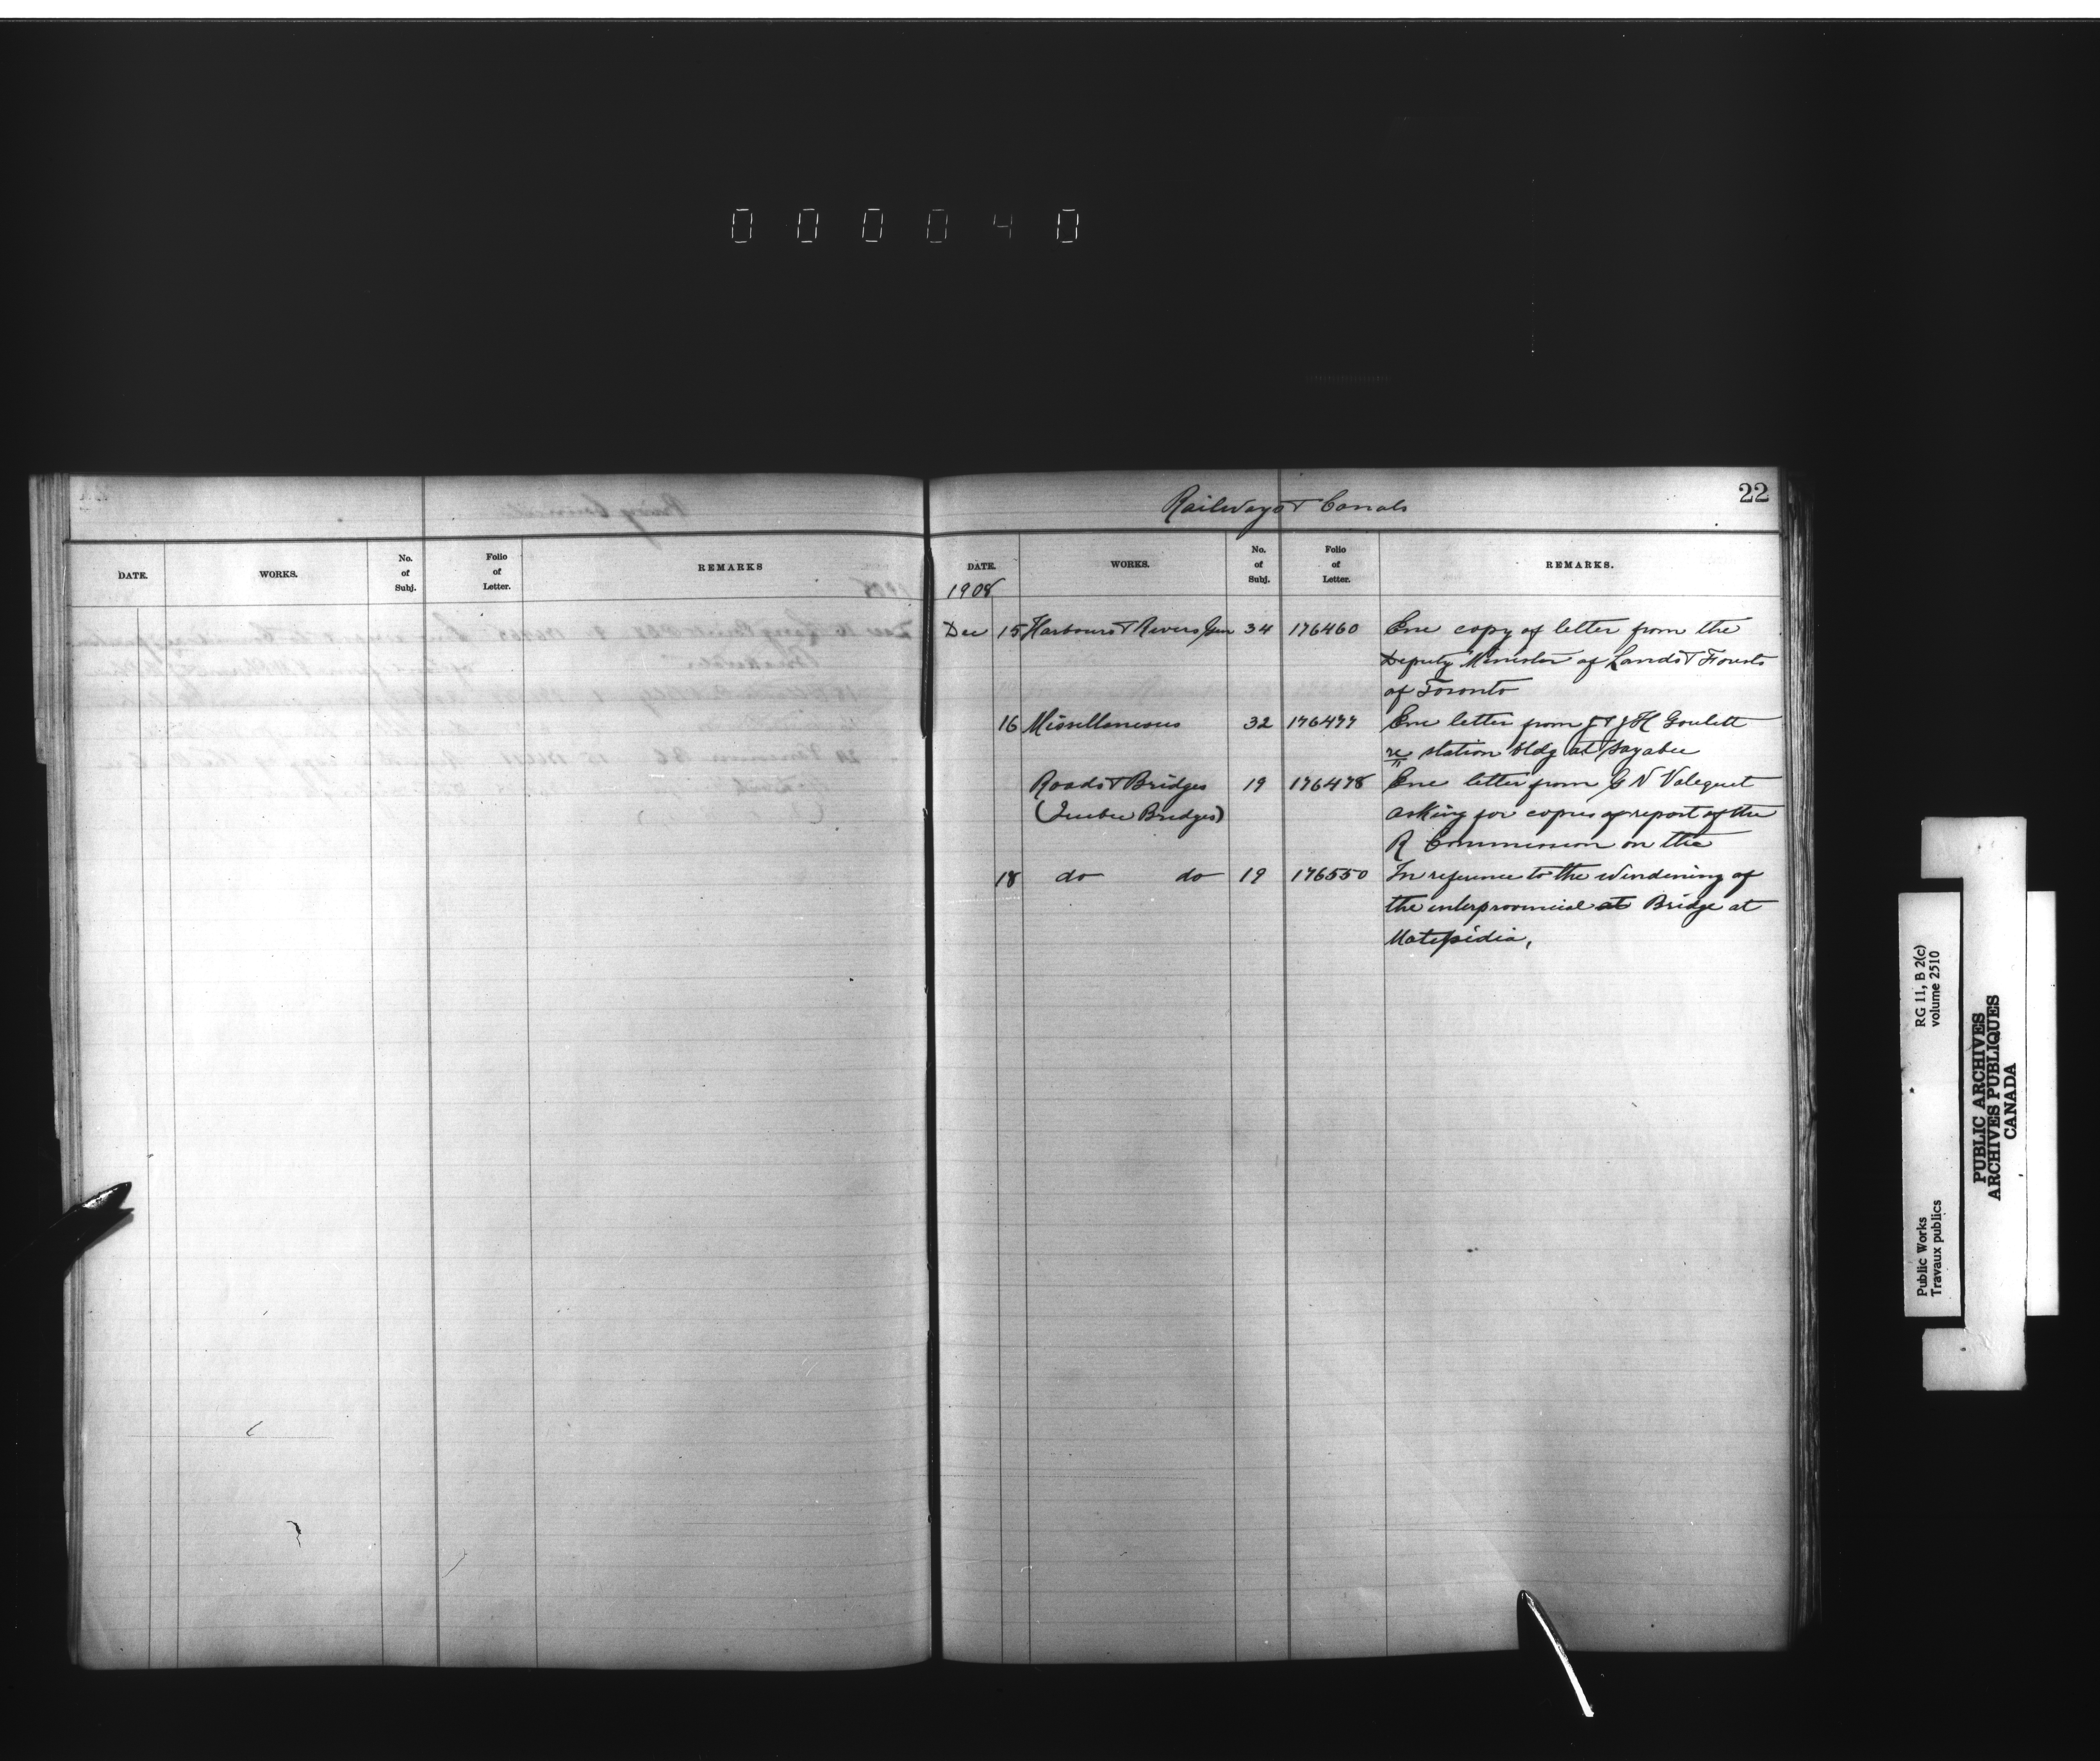 000040
Railways & Canals
22
DATE.
WORKS.
No.
of
Subj.
Folio
of
Letter.
REMARKS
DATE.
WORKS.
No.
of
Subj.
Folio
of
Letter.
REMARKS.
1908
Dec 15 Harbours & Rivers Gen 34 176460 Enc copy of letter from the
Deputy Minister of Lands & Forests
of Toronto
16 Miscellaneous 32 176477 Enc letter from J & J H Goulett
re station bldg at Sayabec
Roads & Bridges 19 176478 Enc letter from G N Valequet
(Quebec Bridges) asking for copies of report of the
R Commission on the
18 do do 19 176550 In reference to the windening of
the interprovincial at Bridge at
Matepidia,
RG 11, B 2(c)
volume 2510
Public Works
Travaux publics
PUBLIC ARCHIVES
ARCHIVES PUBLIQUES
CANADA